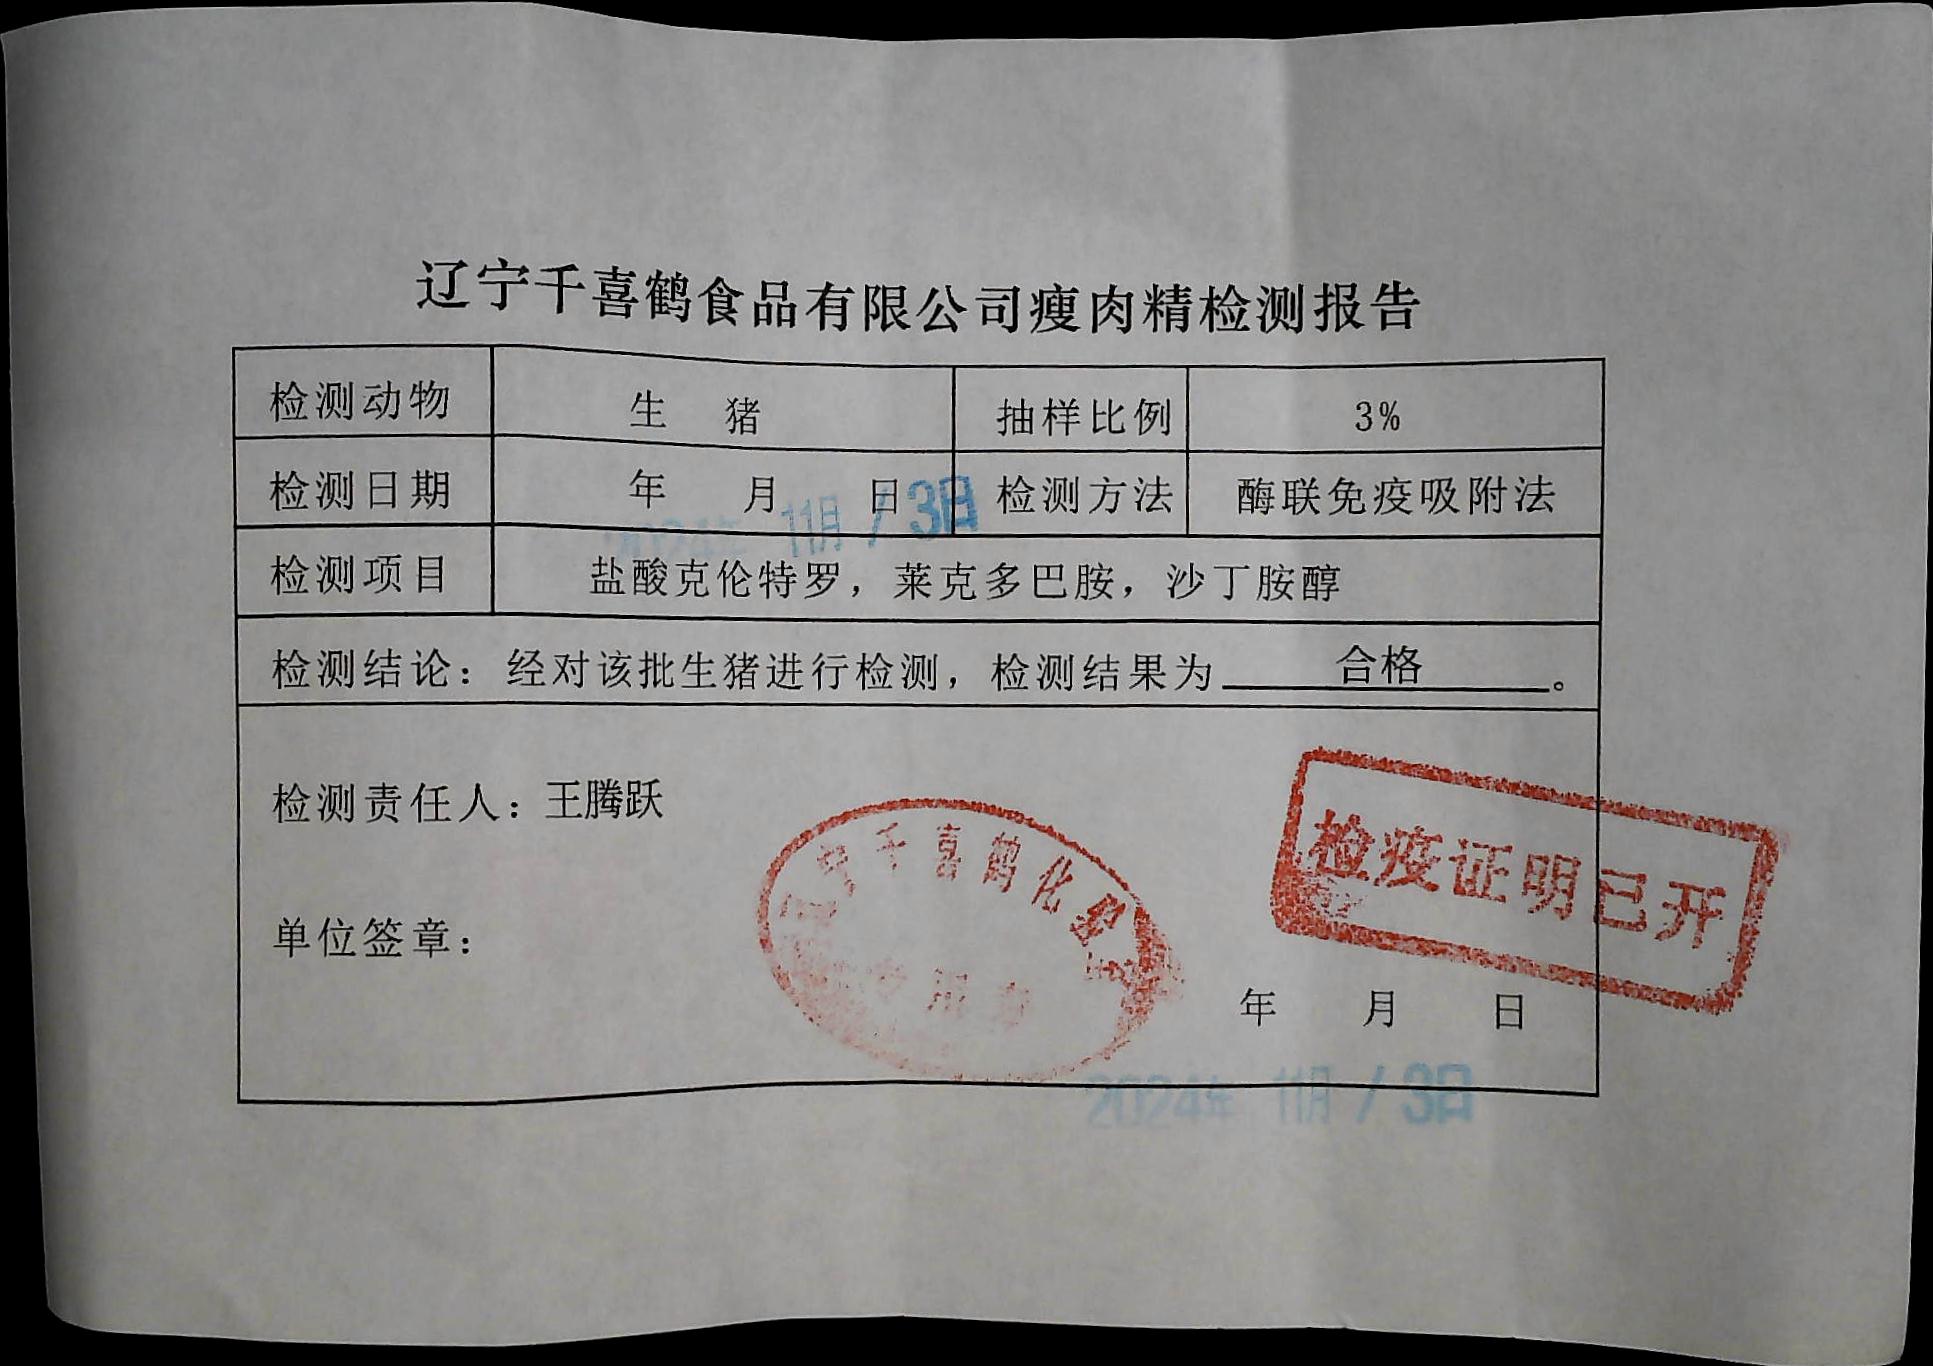 辽宁千喜鹤食品有限公司瘦肉精检测报告
检测动物 生 猪 抽样比例 3%
检测日期 年 月 日 检测方法 酶联免疫吸附法
2024年 11月 / 3日
检测项目 盐酸克伦特罗，莱克多巴胺，沙丁胺醇
检测结论：经对该批生猪进行检测，检测结果为 合格 。
检测责任人：王腾跃
辽宁千喜鹤化验
专用章
检疫证明已开
单位签章：
年 月 日
2024年 11月 / 3日